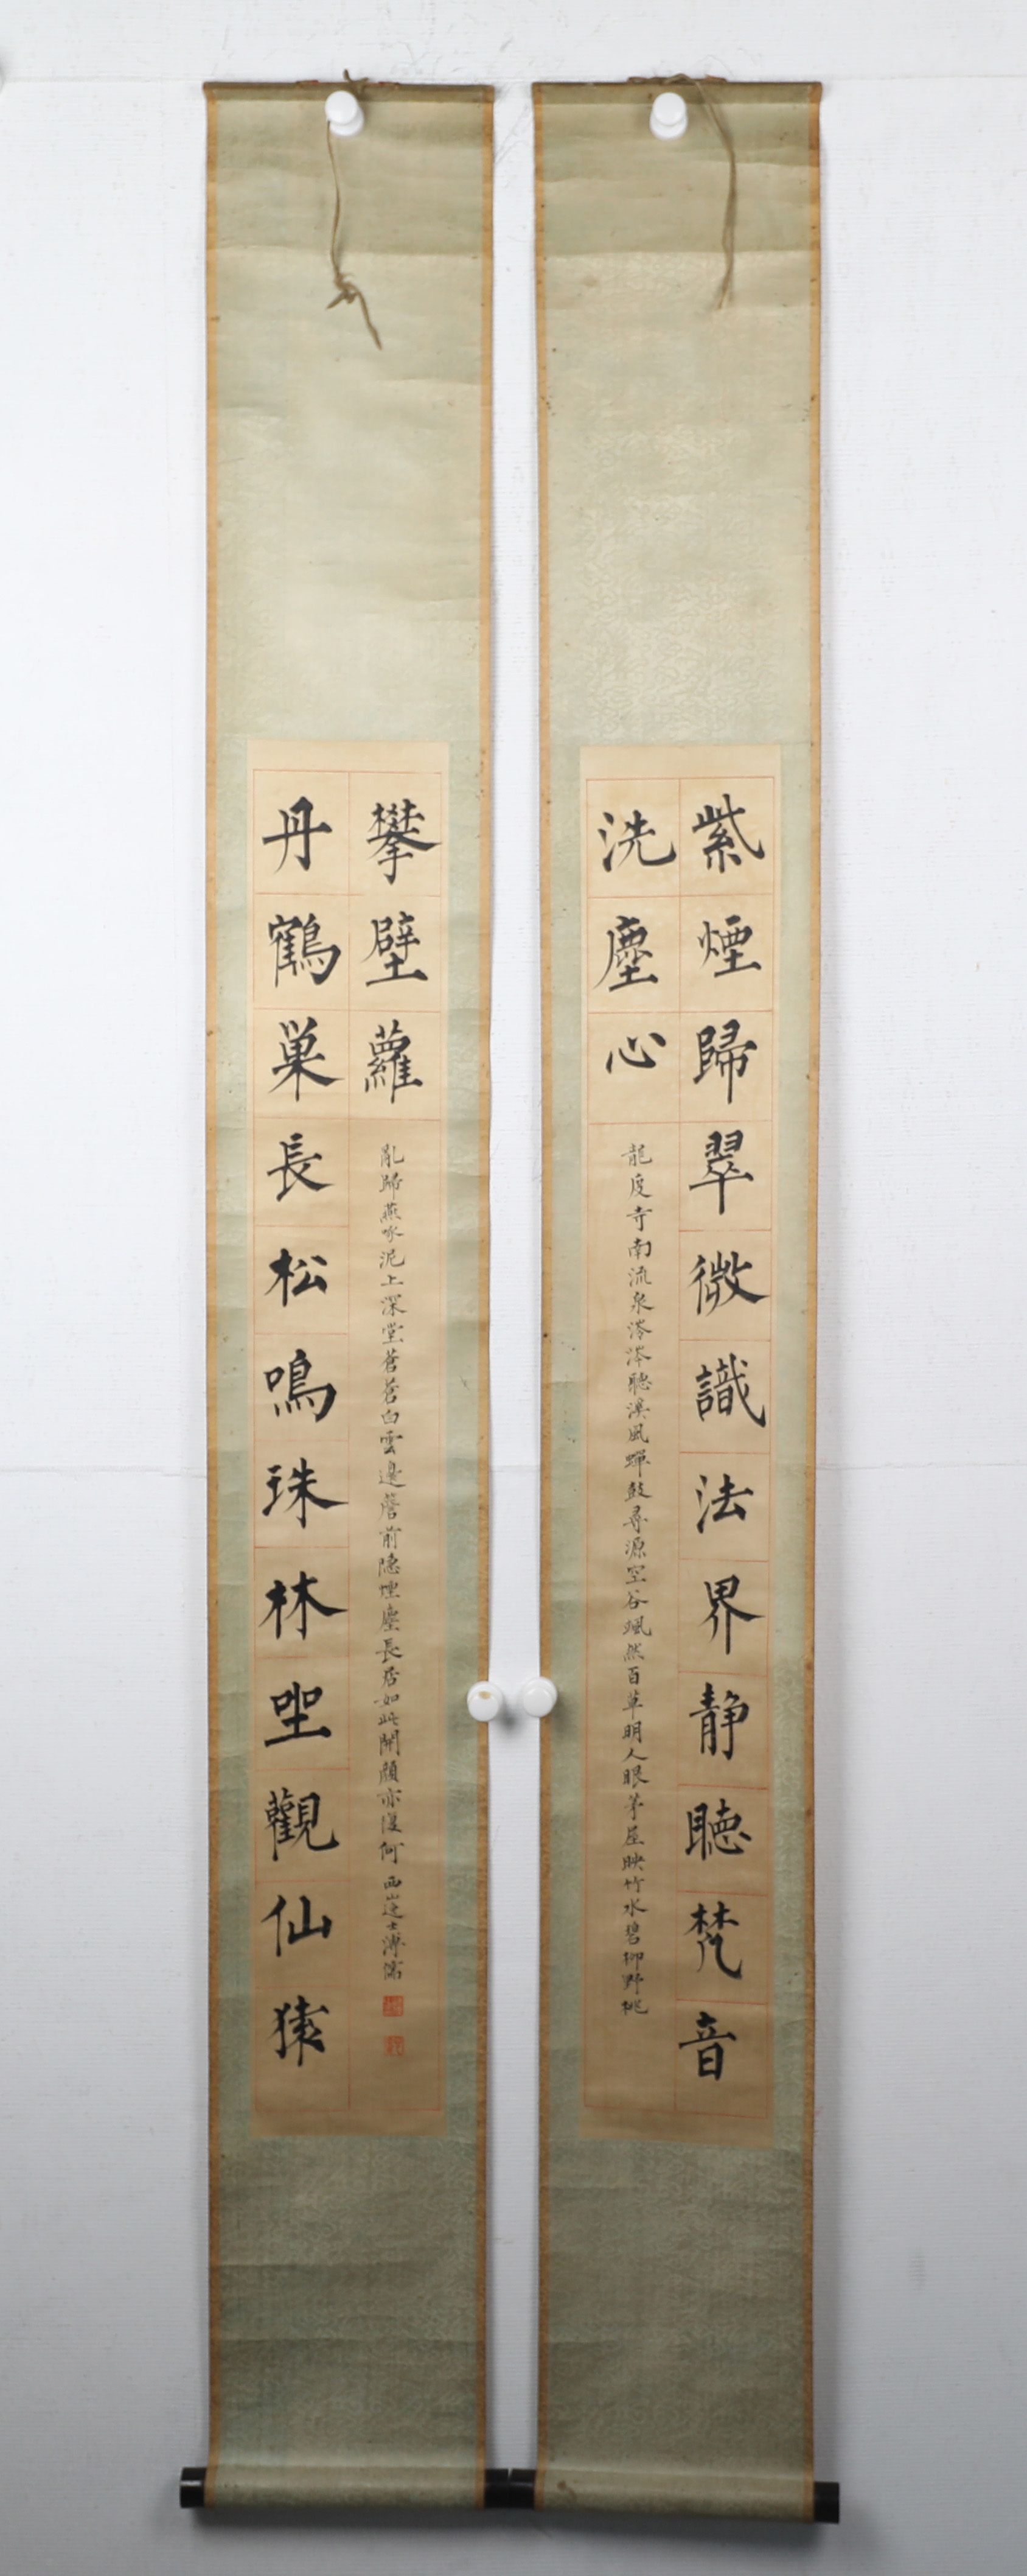 紫煙歸翠微識法界靜聽梵音
洗塵心
龍度寺南流泉涔涔聽溪風蟬鼓尋源空谷颯然百草明人眼茅屋映竹水碧柳野桃
丹鶴巢長松鳴珠林坐觀仙猿
攀壁蘿
亂歸燕啄泥上深堂蒼蒼白雲邊簷前隱煙塵長居如此開顏亦復何
西山逸士溥儒